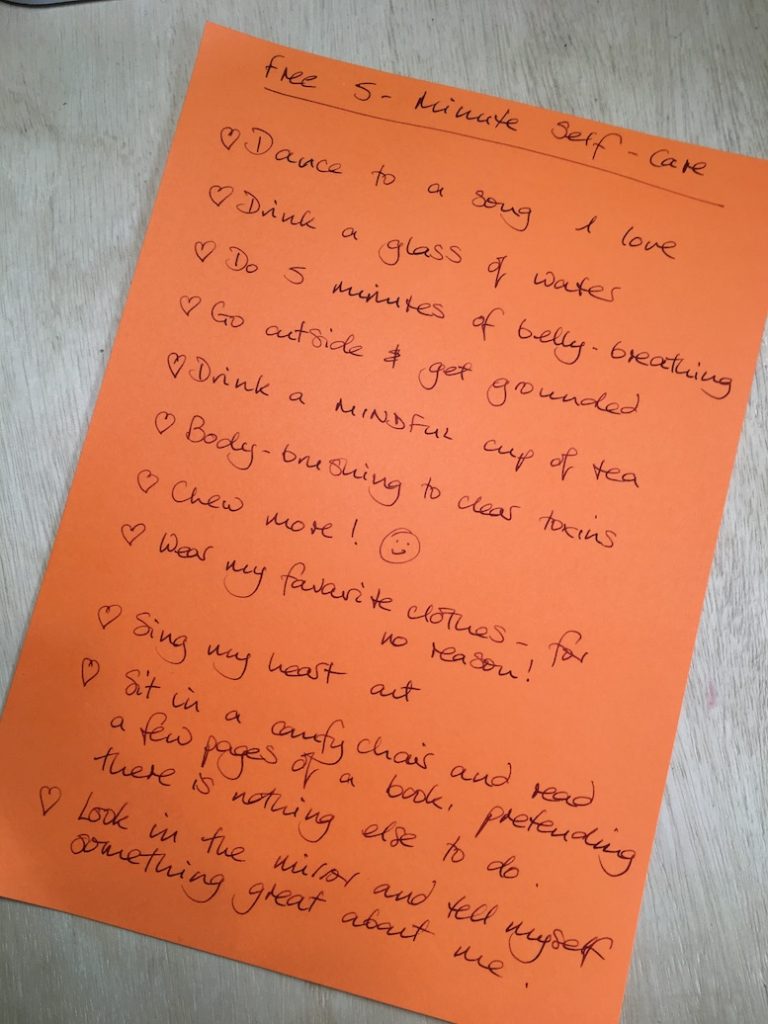 Free 5-Minute Self-Care
♡ Dance to a song I love
♡ Drink a glass of water
♡ Do 5 minutes of belly-breathing
♡ Go outside & get grounded
♡ Drink a MINDFUL cup of tea
♡ Body-brushing to clear toxins
♡ Chew more! ☺
♡ Wear my favorite clothes - for
no reason!
♡ Sing my heart out
♡ Sit in a comfy chair and read
a few pages of a book, pretending
there is nothing else to do.
♡ Look in the mirror and tell myself
something great about me.